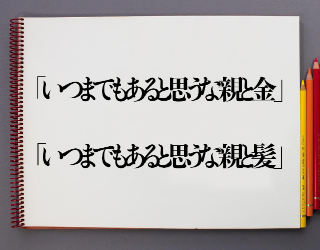 「いつまでもあると思うな親と金」
「いつまでもあると思うな親と髪」